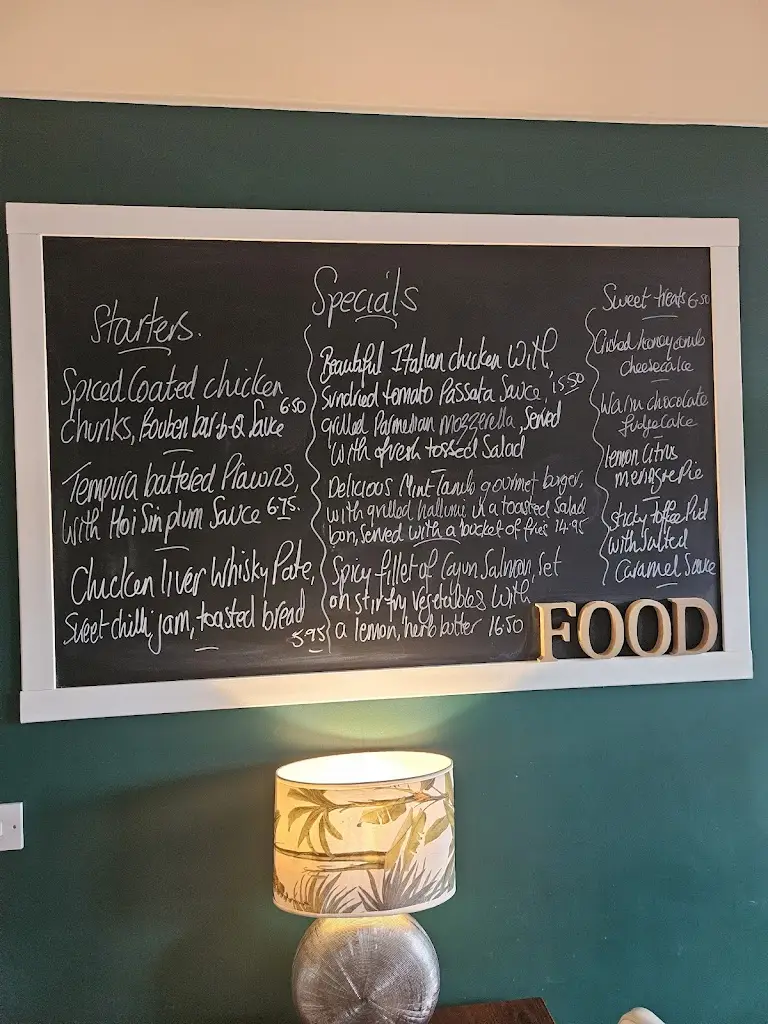 Starters.
Spiced Coated chicken
chunks, Bouben bar-b-Q Sauce 6.50
Tempura battered Prawns,
with Hoi Sin plum Sauce 6.75.
Chicken liver Whisky Pate,
Sweet chilli jam, toasted bread
5.95
Specials
Beautiful Italian chicken with
Sundried tomato Passata Sauce, 15.50
grilled Parmesan mozzerella, served
with a fresh tossed Salad
Delicious Mint Lamb gourmet burger,
with grilled halluni in a toasted Salad
bun, served with a bucket of fries 14.95
Spicy fillet of Cajun Salmon, set
on stir fry vegetables with
a lemon, herb butter 16.50
Sweet treats 6.50
honeycomb
cheesecake
Warm chocolate
fudge cake
lemon Citrus
meringue Pie
sticky toffee Pud
with Salted
Caramel Sauce
FOOD